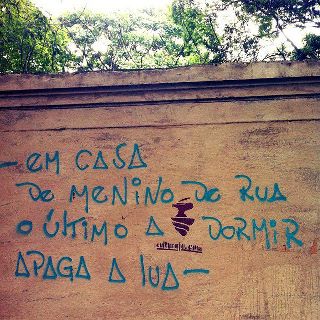 - em CASA
De MENINO De RUA
O ÚLTIMO A DORMIR
APAGA A LUA -